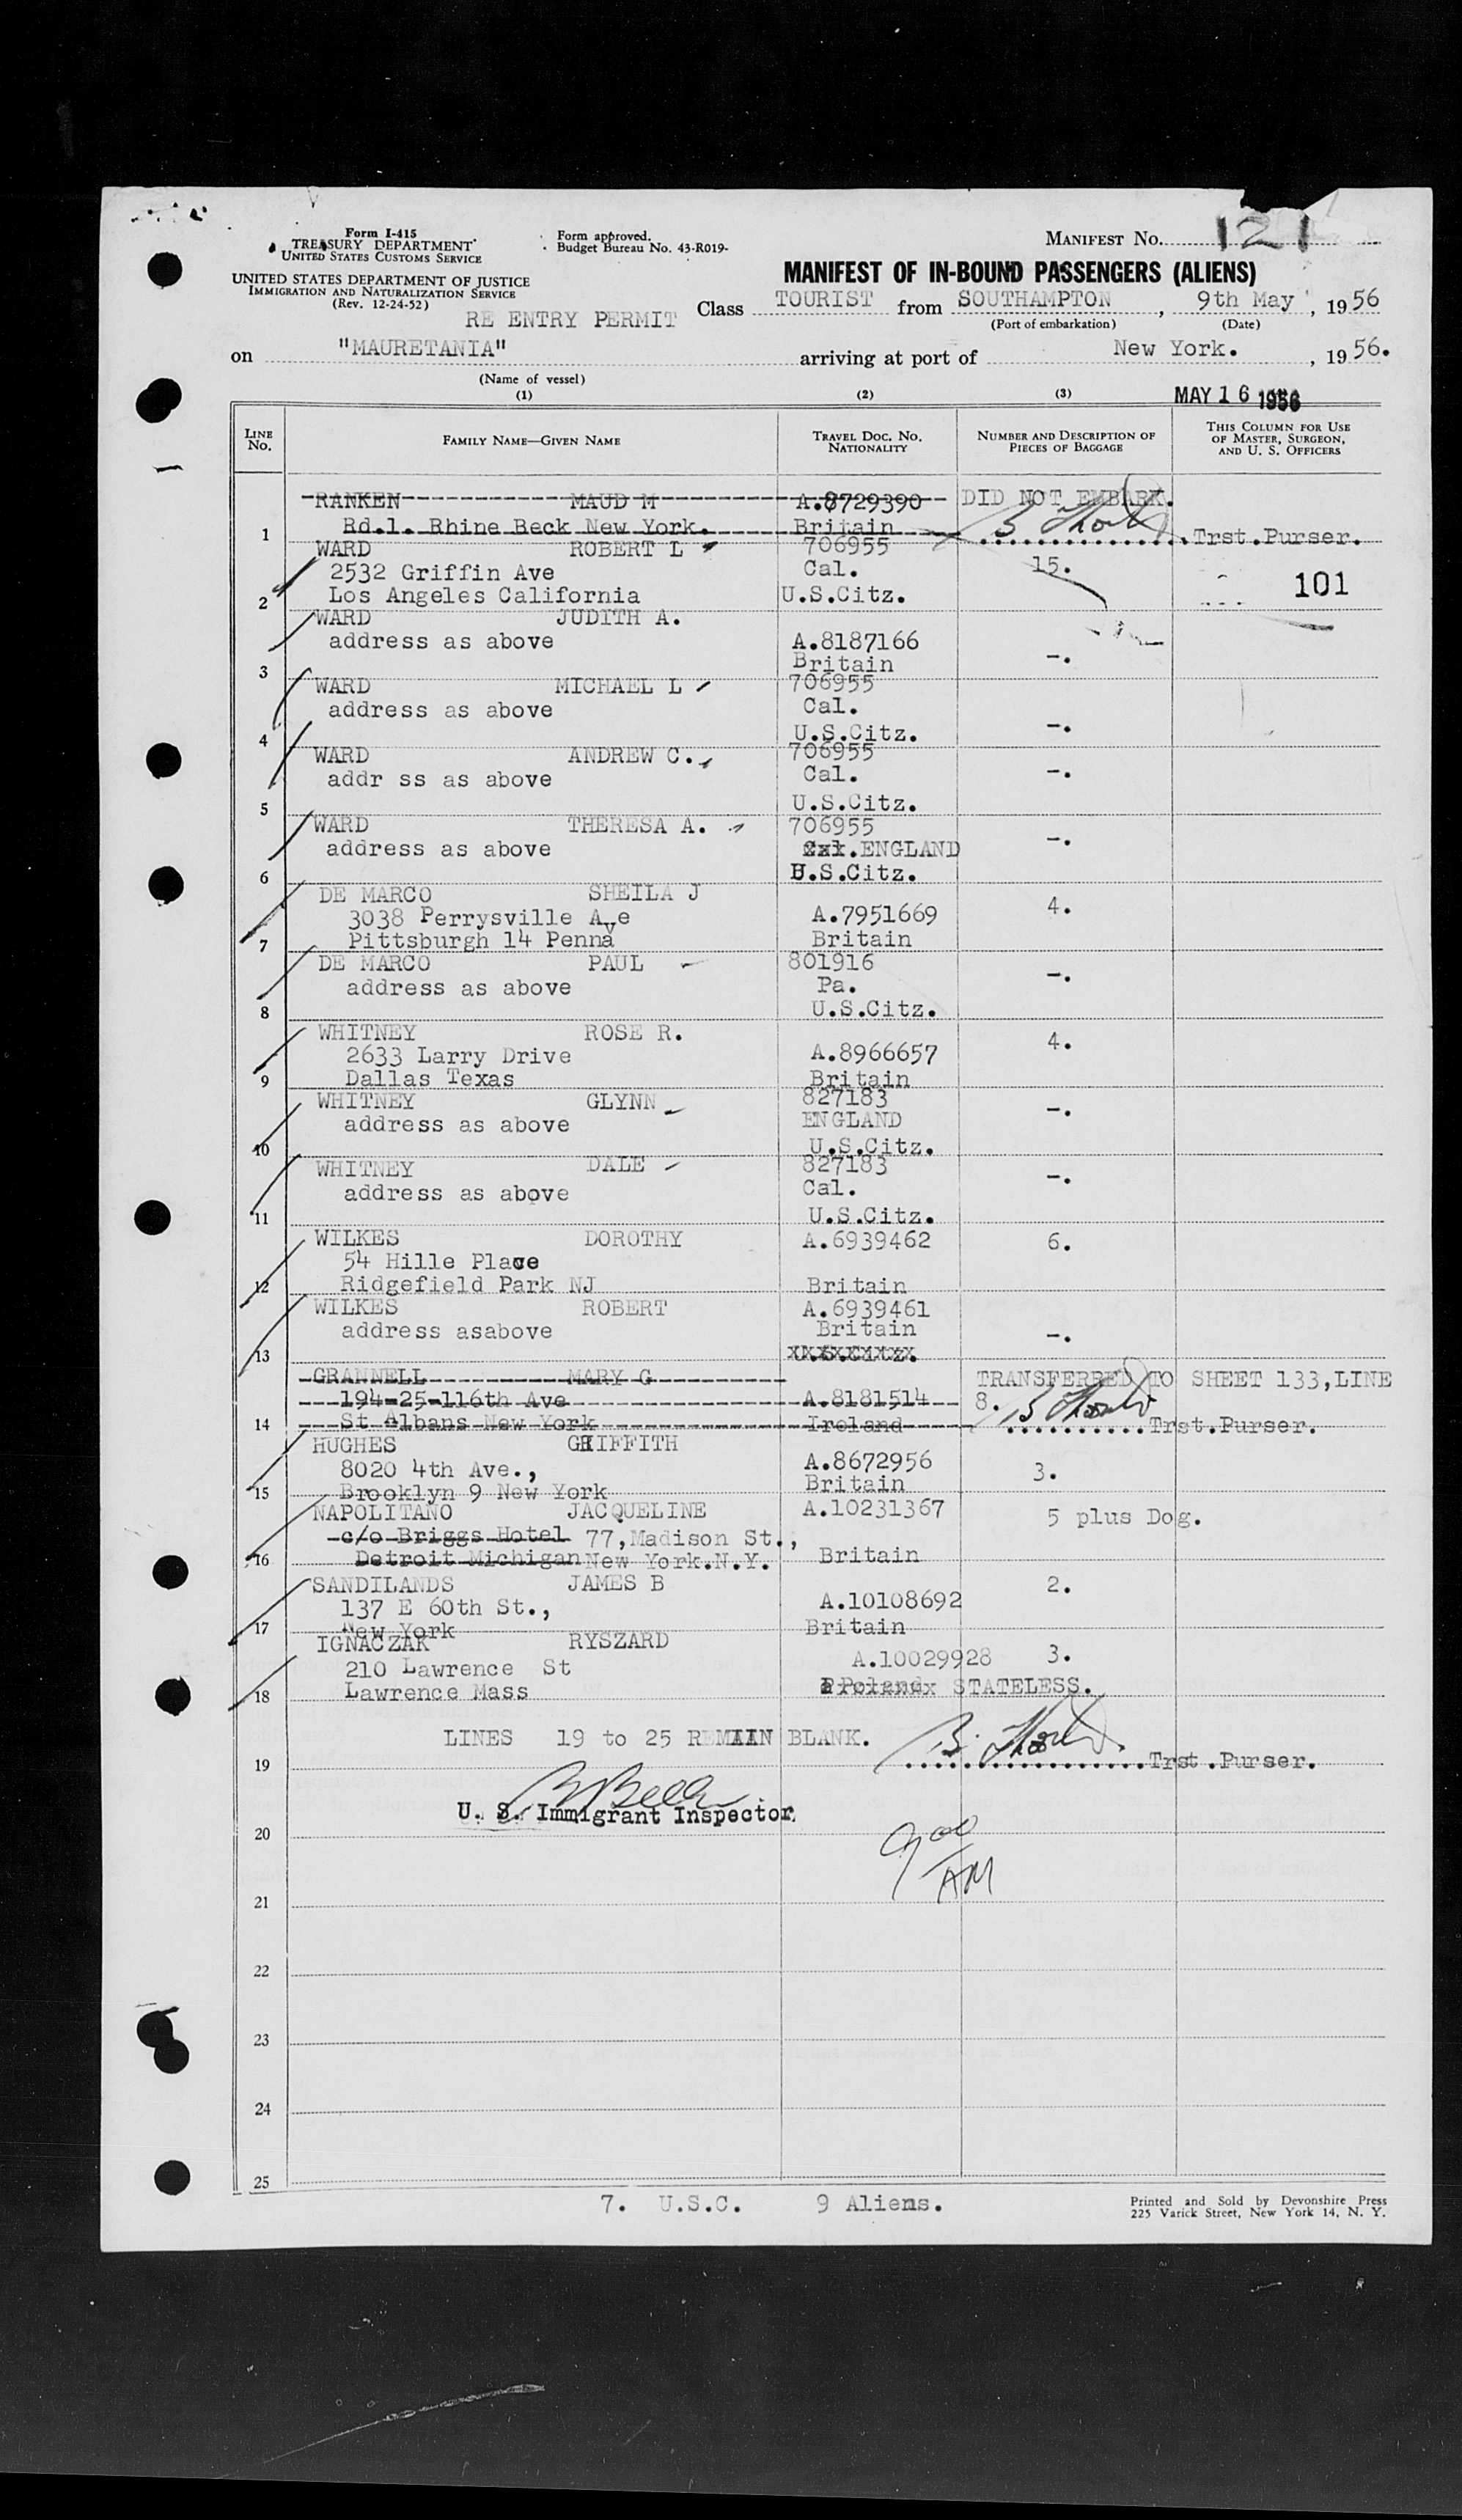 Form I-415
TREASURY DEPARTMENT
UNITED STATES CUSTOMS SERVICE
UNITED STATES DEPARTMENT OF JUSTICE
IMMIGRATION AND NATURALIZATION SERVICE
(Rev. 12-24-52)
Form approved.
Budget Bureau No. 43-R019-
MANIFEST No. 121
MANIFEST OF IN-BOUND PASSENGERS (ALIENS)
RE ENTRY PERMIT Class TOURIST from SOUTHAMPTON , 9th May , 1956
(Port of embarkation) (Date)
on "MAURETANIA" arriving at port of New York. , 19 56.
(Name of vessel)
(1) (2) (3) MAY 16 1956
LINE No. FAMILY NAME—GIVEN NAME TRAVEL DOC. No. NATIONALITY NUMBER AND DESCRIPTION OF PIECES OF BAGGAGE THIS COLUMN FOR USE OF MASTER, SURGEON, AND U. S. OFFICERS
RANKEN MAUD M A.8729390 DID NOT EMBARK.
1 Rd.1. Rhine Beck New York. Britain Trst.Purser.
WARD ROBERT L 706955
2532 Griffin Ave Cal. 15.
2 Los Angeles California U.S.Citz. 101
WARD JUDITH A.
address as above A.8187166
3 Britain -.
WARD MICHAEL L 706955
address as above Cal.
4 U.S.Citz. -.
WARD ANDREW C. 706955
addr ss as above Cal. -.
5 U.S.Citz.
WARD THERESA A. 706955
address as above Cal.ENGLAND -.
6 U.S.Citz.
DE MARCO SHEILA J
3038 Perrysville Ave A.7951669 4.
7 Pittsburgh 14 Penna Britain
DE MARCO PAUL 801916
address as above Pa. -.
8 U.S.Citz.
WHITNEY ROSE R.
2633 Larry Drive A.8966657 4.
9 Dallas Texas Britain
WHITNEY GLYNN 827183
address as above ENGLAND -.
10 U.S.Citz.
WHITNEY DALE 827183
address as above Cal. -.
11 U.S.Citz.
WILKES DOROTHY A.6939462 6.
54 Hille Place
12 Ridgefield Park NJ Britain
WILKES ROBERT A.6939461
address asabove Britain -.
13 U.S.Citz.
GRANNELL MARY G TRANSFERRED TO SHEET 133,LINE
194-25-116th Ave A.8181514 8.
14 St Albans New York Ireland Trst.Purser.
HUGHES GRIFFITH
8020 4th Ave., A.8672956 3.
15 Brooklyn 9 New York Britain
NAPOLITANO JACQUELINE A.10231367 5 plus Dog.
c/o Briggs Hotel 77,Madison St.,
16 Detroit Michigan New York.N.Y. Britain
SANDILANDS JAMES B 2.
137 E 60th St., A.10108692
17 New York Britain
IGNACZAK RYSZARD
210 Lawrence St A.10029928 3.
18 Lawrence Mass Poland STATELESS.
LINES 19 to 25 REMAIN BLANK.
19 Trst.Purser.
U. S. Immigrant Inspector
20 9 00
AM
21
22
23
24
25
7. U.S.C. 9 Aliens.
Printed and Sold by Devonshire Press
225 Varick Street, New York 14, N. Y.